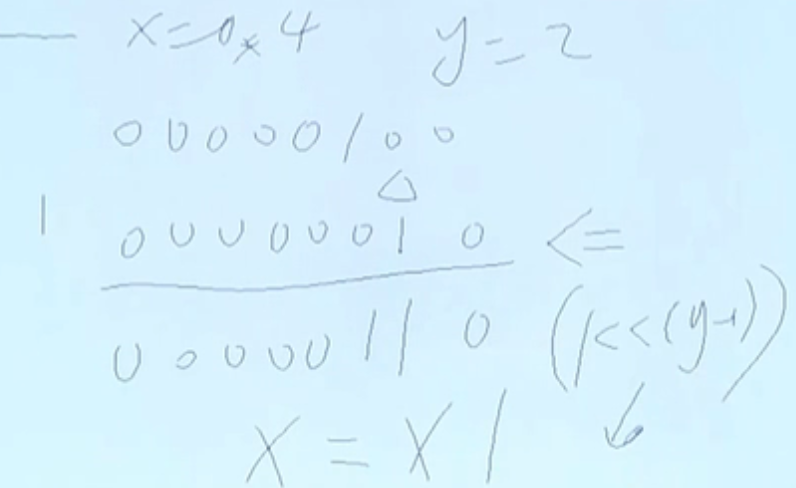 x=0x4 y=2
00000100
△
| 00000010 <=
00000110 (1<<(y-1))
X = X | ↓